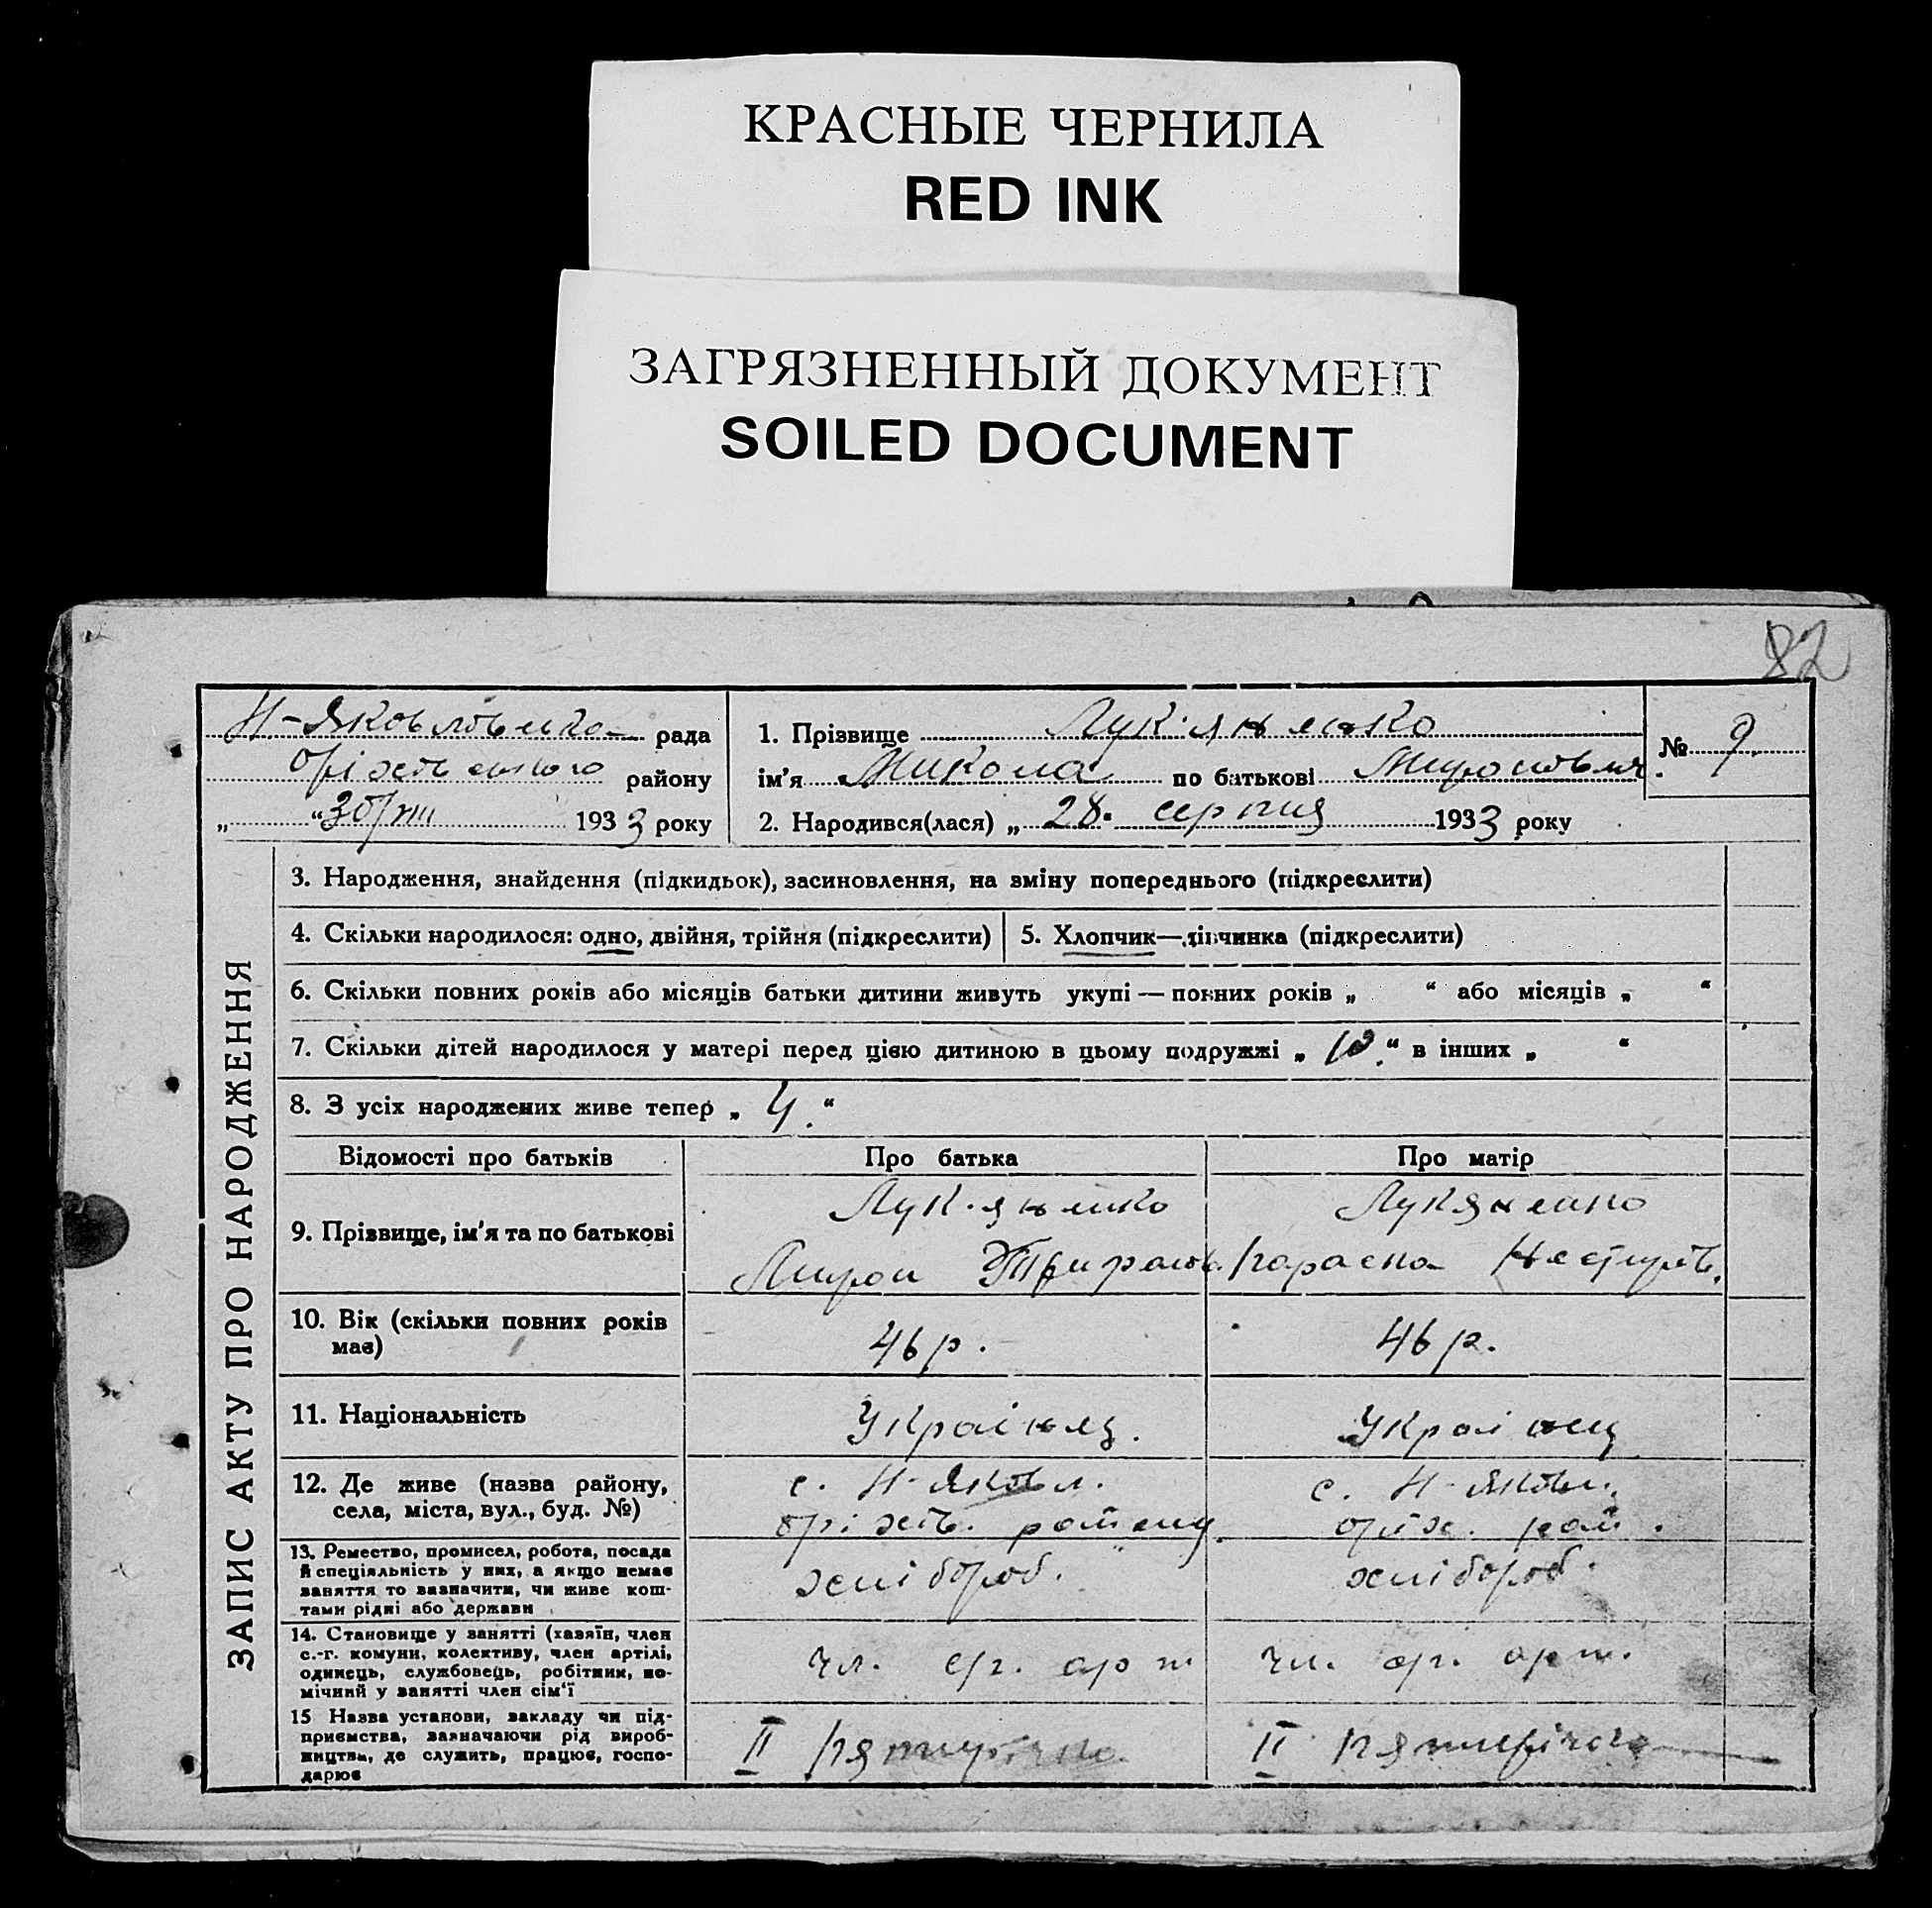 КРАСНЫЕ ЧЕРНИЛА
RED INK
ЗАГРЯЗНЕННЫЙ ДОКУМЕНТ
SOILED DOCUMENT
82
Н-Яковлівська рада
Оріхівського району
„ “ 30/VIII 1933 року
1. Прізвище Лук'яненко
ім'я Микола по батькові Миронович
2. Народився(лася) „ 28. серпня 1933 року
№ 9.
ЗАПИС АКТУ ПРО НАРОДЖЕННЯ
3. Народження, знайдення (підкидьок), засиновлення, на зміну попереднього (підкреслити)
4. Скільки народилося: одно, двійня, трійня (підкреслити)
5. Хлопчик—дівчинка (підкреслити)
6. Скільки повних років або місяців батьки дитини живуть укупі — повних років „ “ або місяців „ “
7. Скільки дітей народилося у матері перед цією дитиною в цьому подружжі „ 10. “ в інших „ “
8. З усіх народжених живе тепер „ 4. “
Відомості про батьків
Про батька
Про матір
9. Прізвище, ім'я та по батькові
Лук'яненко
Мирон
Лукяненко
Параска
10. Вік (скільки повних років
має)
46 р.
46 р.
11. Національність
Українец.
Українец
12. Де живе (назва району,
села, міста, вул., буд. №)
с. Н-Яковл.
оріхів. району.
с. Н-Яковл.
оріх. рай.
13. Ремество, промисел, робота, посада
й спеціяльність у них, а якщо немає
заняття то зазначити, чи живе кош-
тами рідні або держави
хлібороб.
хлібороб.
14. Становище у занятті (хазяїн, член
с.-г. комуни, колективу, член артілі,
одинець, службовець, робітник, по-
мічний у занятті член сім'ї
чл. сг. арт
чл. сг. арт.
15 Назва установи, закладу чи під-
приємства, зазначаючи рід вироб-
ництва, де служить, працює, госпо-
дарює
II пятирічка
II пятирічка